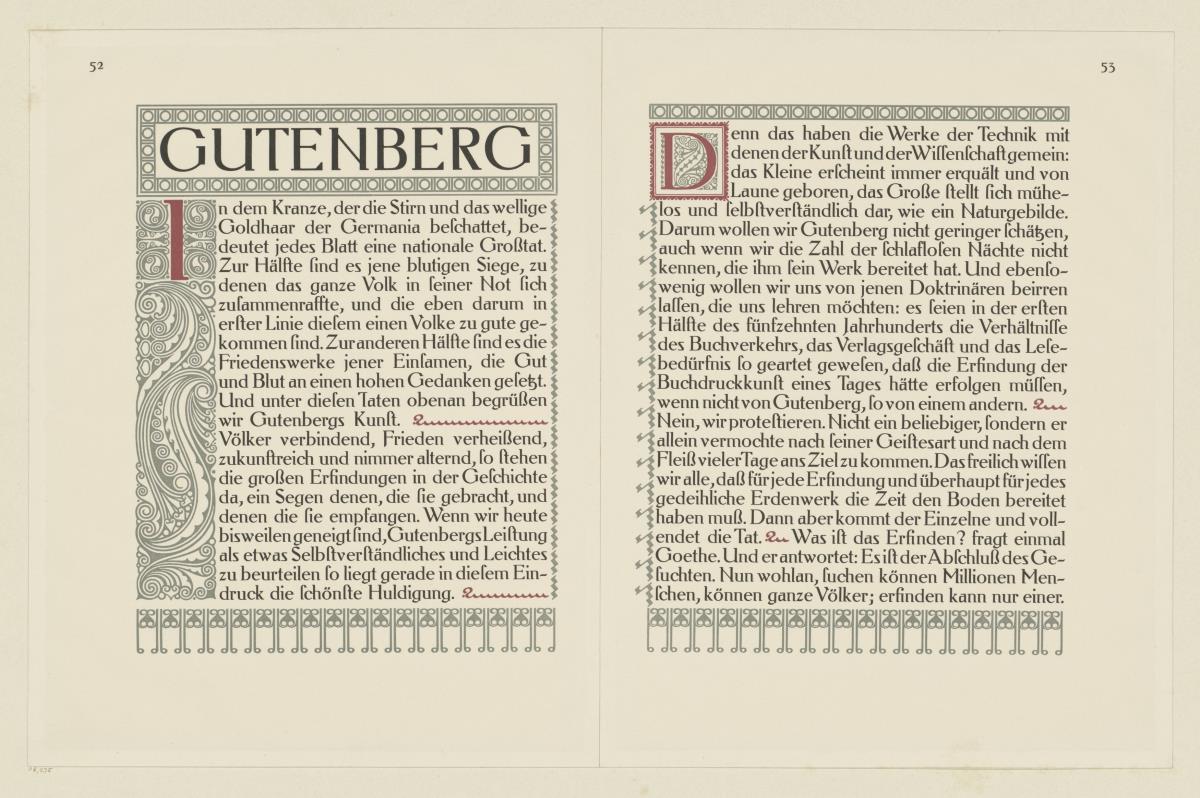 52
GUTENBERG
In dem Kranze, der die Stirn und das wellige
Goldhaar der Germania beſchattet, be-
deutet jedes Blatt eine nationale Großtat.
Zur Hälfte ſind es jene blutigen Siege, zu
denen das ganze Volk in ſeiner Not ſich
zuſammenraffte, und die eben darum in
erſter Linie dieſem einen Volke zu gute ge-
kommen ſind. Zur anderen Hälfte ſind es die
Friedenswerke jener Einſamen, die Gut
und Blut an einen hohen Gedanken geſetzt.
Und unter dieſen Taten obenan begrüßen
wir Gutenbergs Kunſt.
Völker verbindend, Frieden verheißend,
zukunftreich und nimmer alternd, ſo ſtehen
die großen Erfindungen in der Geſchichte
da, ein Segen denen, die ſie gebracht, und
denen die ſie empfangen. Wenn wir heute
bisweilen geneigt ſind, Gutenbergs Leiſtung
als etwas Selbſtverſtändliches und Leichtes
zu beurteilen ſo liegt gerade in dieſem Ein-
druck die ſchönſte Huldigung.
53
Denn das haben die Werke der Technik mit
denen der Kunſt und der Wiſſenſchaft gemein:
das Kleine erſcheint immer erquält und von
Laune geboren, das Große ſtellt ſich mühe-
los und ſelbſtverſtändlich dar, wie ein Naturgebilde.
Darum wollen wir Gutenberg nicht geringer ſchätzen,
auch wenn wir die Zahl der ſchlafloſen Nächte nicht
kennen, die ihm ſein Werk bereitet hat. Und ebenſo-
wenig wollen wir uns von jenen Doktrinären beirren
laſſen, die uns lehren möchten: es ſeien in der erſten
Hälfte des fünfzehnten Jahrhunderts die Verhältniſſe
des Buchverkehrs, das Verlagsgeſchäft und das Leſe-
bedürfnis ſo geartet geweſen, daß die Erfindung der
Buchdruckkunſt eines Tages hätte erfolgen müſſen,
wenn nicht von Gutenberg, ſo von einem andern.
Nein, wir proteſtieren. Nicht ein beliebiger, ſondern er
allein vermochte nach ſeiner Geiſtesart und nach dem
Fleiß vieler Tage ans Ziel zu kommen. Das freilich wiſſen
wir alle, daß für jede Erfindung und überhaupt für jedes
gedeihliche Erdenwerk die Zeit den Boden bereitet
haben muß. Dann aber kommt der Einzelne und voll-
endet die Tat. Was iſt das Erfinden? fragt einmal
Goethe. Und er antwortet: Es iſt der Abſchluß des Ge-
ſuchten. Nun wohlan, ſuchen können Millionen Men-
ſchen, können ganze Völker; erfinden kann nur einer.